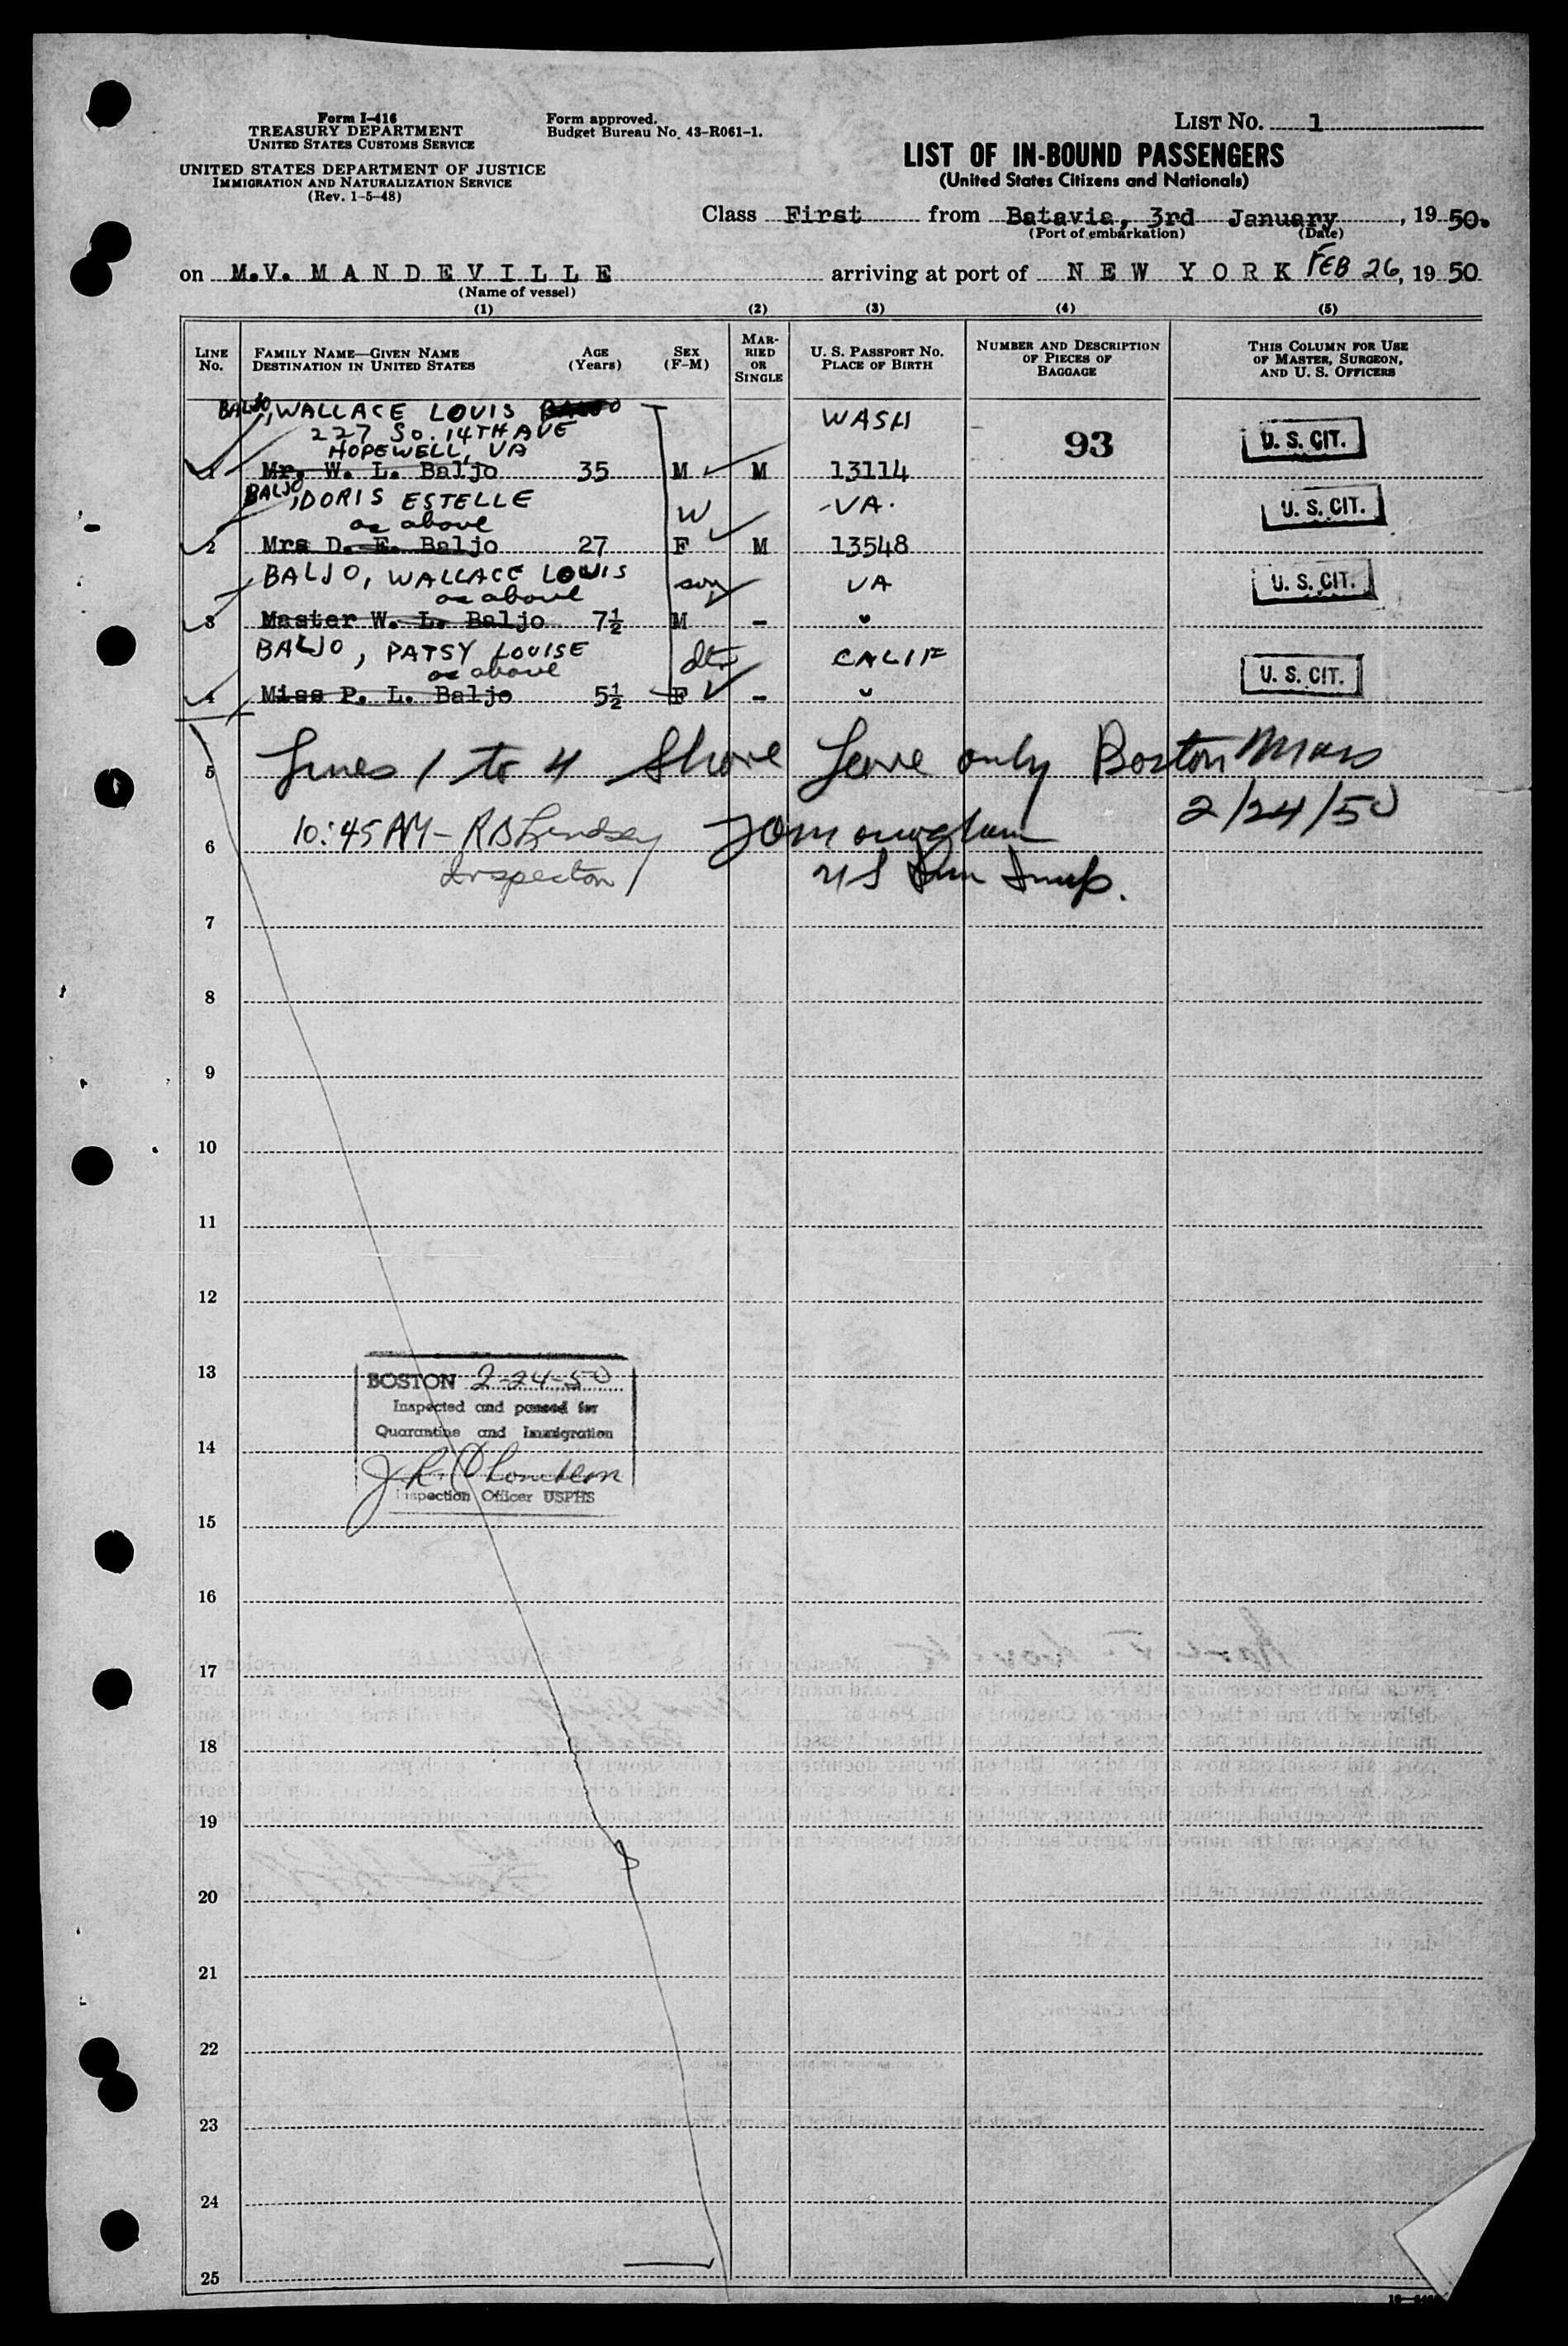 Form I-416
TREASURY DEPARTMENT
UNITED STATES CUSTOMS SERVICE
UNITED STATES DEPARTMENT OF JUSTICE
IMMIGRATION AND NATURALIZATION SERVICE
(Rev. 1-5-48)
Form approved.
Budget Bureau No. 43-R061-1.
LIST NO. 1
LIST OF IN-BOUND PASSENGERS
(United States Citizens and Nationals)
Class First from Batavia, 3rd January, 19 50.
(Port of embarkation) (Date)
on M.V. MANDEVILLE arriving at port of NEW YORK FEB 26, 19 50
(Name of vessel)
(1) (2) (3) (4) (5)
LINE NO.
FAMILY NAME—GIVEN NAME
DESTINATION IN UNITED STATES
AGE (Years)
SEX (F-M)
MARRIED OR SINGLE
U. S. PASSPORT NO.
PLACE OF BIRTH
NUMBER AND DESCRIPTION OF PIECES OF BAGGAGE
THIS COLUMN FOR USE OF MASTER, SURGEON, AND U. S. OFFICERS
BALJO, WALLACE LOUIS BALJO WASH
227 SO. 14TH AVE 93 U. S. CIT.
HOPEWELL, VA
1 Mr. W. L. Baljo 35 M M 13114
BALJO, DORIS ESTELLE W VA. U. S. CIT.
as above
2 Mrs D. E. Baljo 27 F M 13548
BALJO, WALLACE LOUIS son VA U. S. CIT.
as above
3 Master W. L. Baljo 7½ M - "
BALJO, PATSY LOUISE dtr CALIF U. S. CIT.
as above
4 Miss P. L. Baljo 5½ F - "
5 Lines 1 to 4 Shore Leave only Boston Mass
2/24/50
6 10:45 AM - R B Lindsey
Inspector
7
8
9
10
11
12
13
BOSTON 2-24-50
Inspected and passed for
Quarantine and Immigration
14
Inspection Officer USPHS
15
16
17
18
19
20
21
22
23
24
25